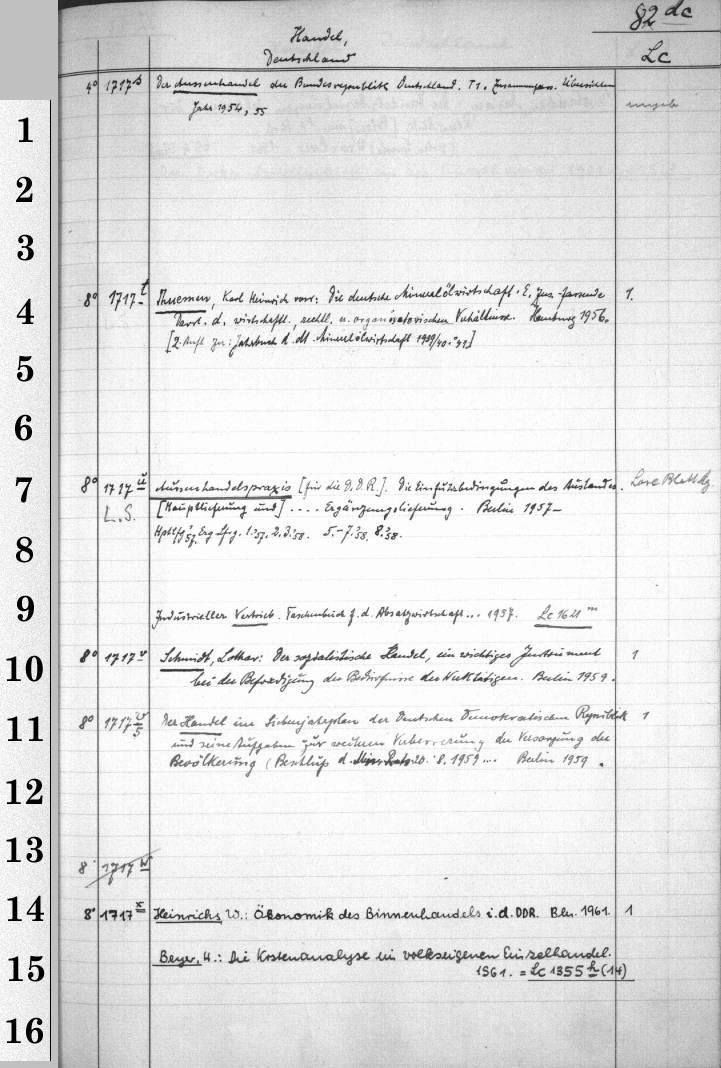 82 dc
Handel,
Deutschland
Lc
4° 1717 s Der Aussenhandel der Bundesrepublik Deutschland. T1. Zusammenfass. Übersichten
Jahr 1954, 55
1
2
3
4
5
6
7
8
9
10
11
12
13
14
15
16
8° 1717 t Thuemen, Karl Heinrich von: Die deutsche Mineralölwirtschaft. E. zus.-fassende 1.
Darst. d. wirtschaftl., rechtl. u. organisatorischen Verhältnisse. Hamburg 1956.
[2. Aufl. zu: Jahrbuch d. dt. Mineralölwirtschaft 1939/40.-41]
8° 1717 u Aussenhandelspraxis [für die D.D.R.]. Die Einfuhrbedingungen des Auslandes. Lose Blatt
L.S. [Hauptlieferung und] .... Ergänzungslieferung. Berlin 1957-
57. Erg. 1. 57. 2. 3. 58. 5.-7. 58. 8. 58.
Industrieller Vertrieb. Taschenbuch f. d. Absatzwirtschaft... 1957. Lc 1621 m
8° 1717 v Schmidt, Lothar: Der sozialistische Handel, ein wichtiges Instrument 1
bei der Befriedigung der Bedürfnisse der Werktätigen. Berlin 1959.
8° 1717 v/5 Der Handel im Siebenjahrplan der Deutschen Demokratischen Republik 1
und seine Aufgaben zur weiteren Verbesserung der Versorgung der
Bevölkerung (Beschluß d. Min. Rats 20. 8. 1959... Berlin 1959.
8° 1717 w
8° 1717 x Heinrichs, W.: Ökonomik des Binnenhandels i.d. DDR. Bln. 1961. 1
Beyer, H.: Die Kostenanalyse im volkseigenen Einzelhandel.
1961. = Lc 1355 h (14)